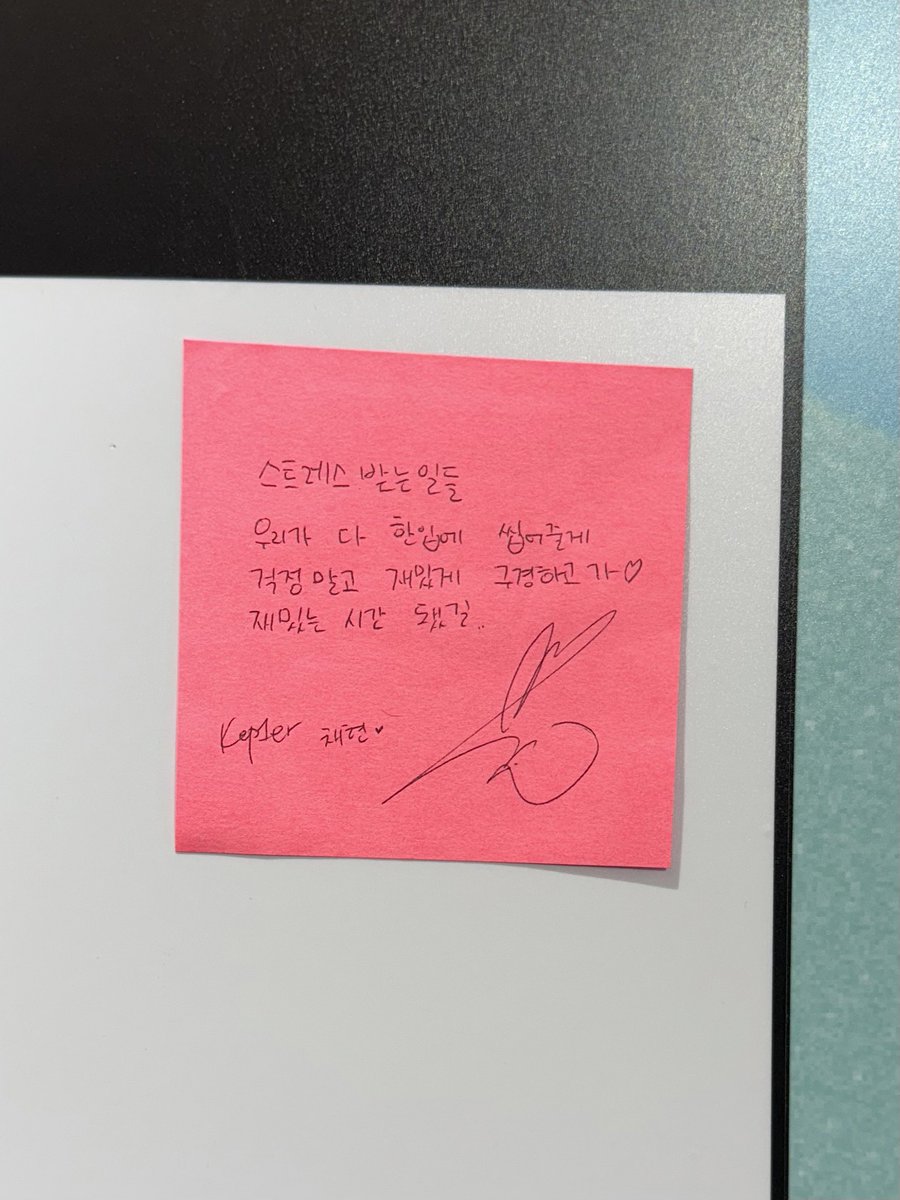 스트레스 받는일들
우리가 다 한입에 씹어줄게
걱정 말고 재밌게 구경하고 가♡
재밌는 시간 됐길..
Kep1er 채현♥